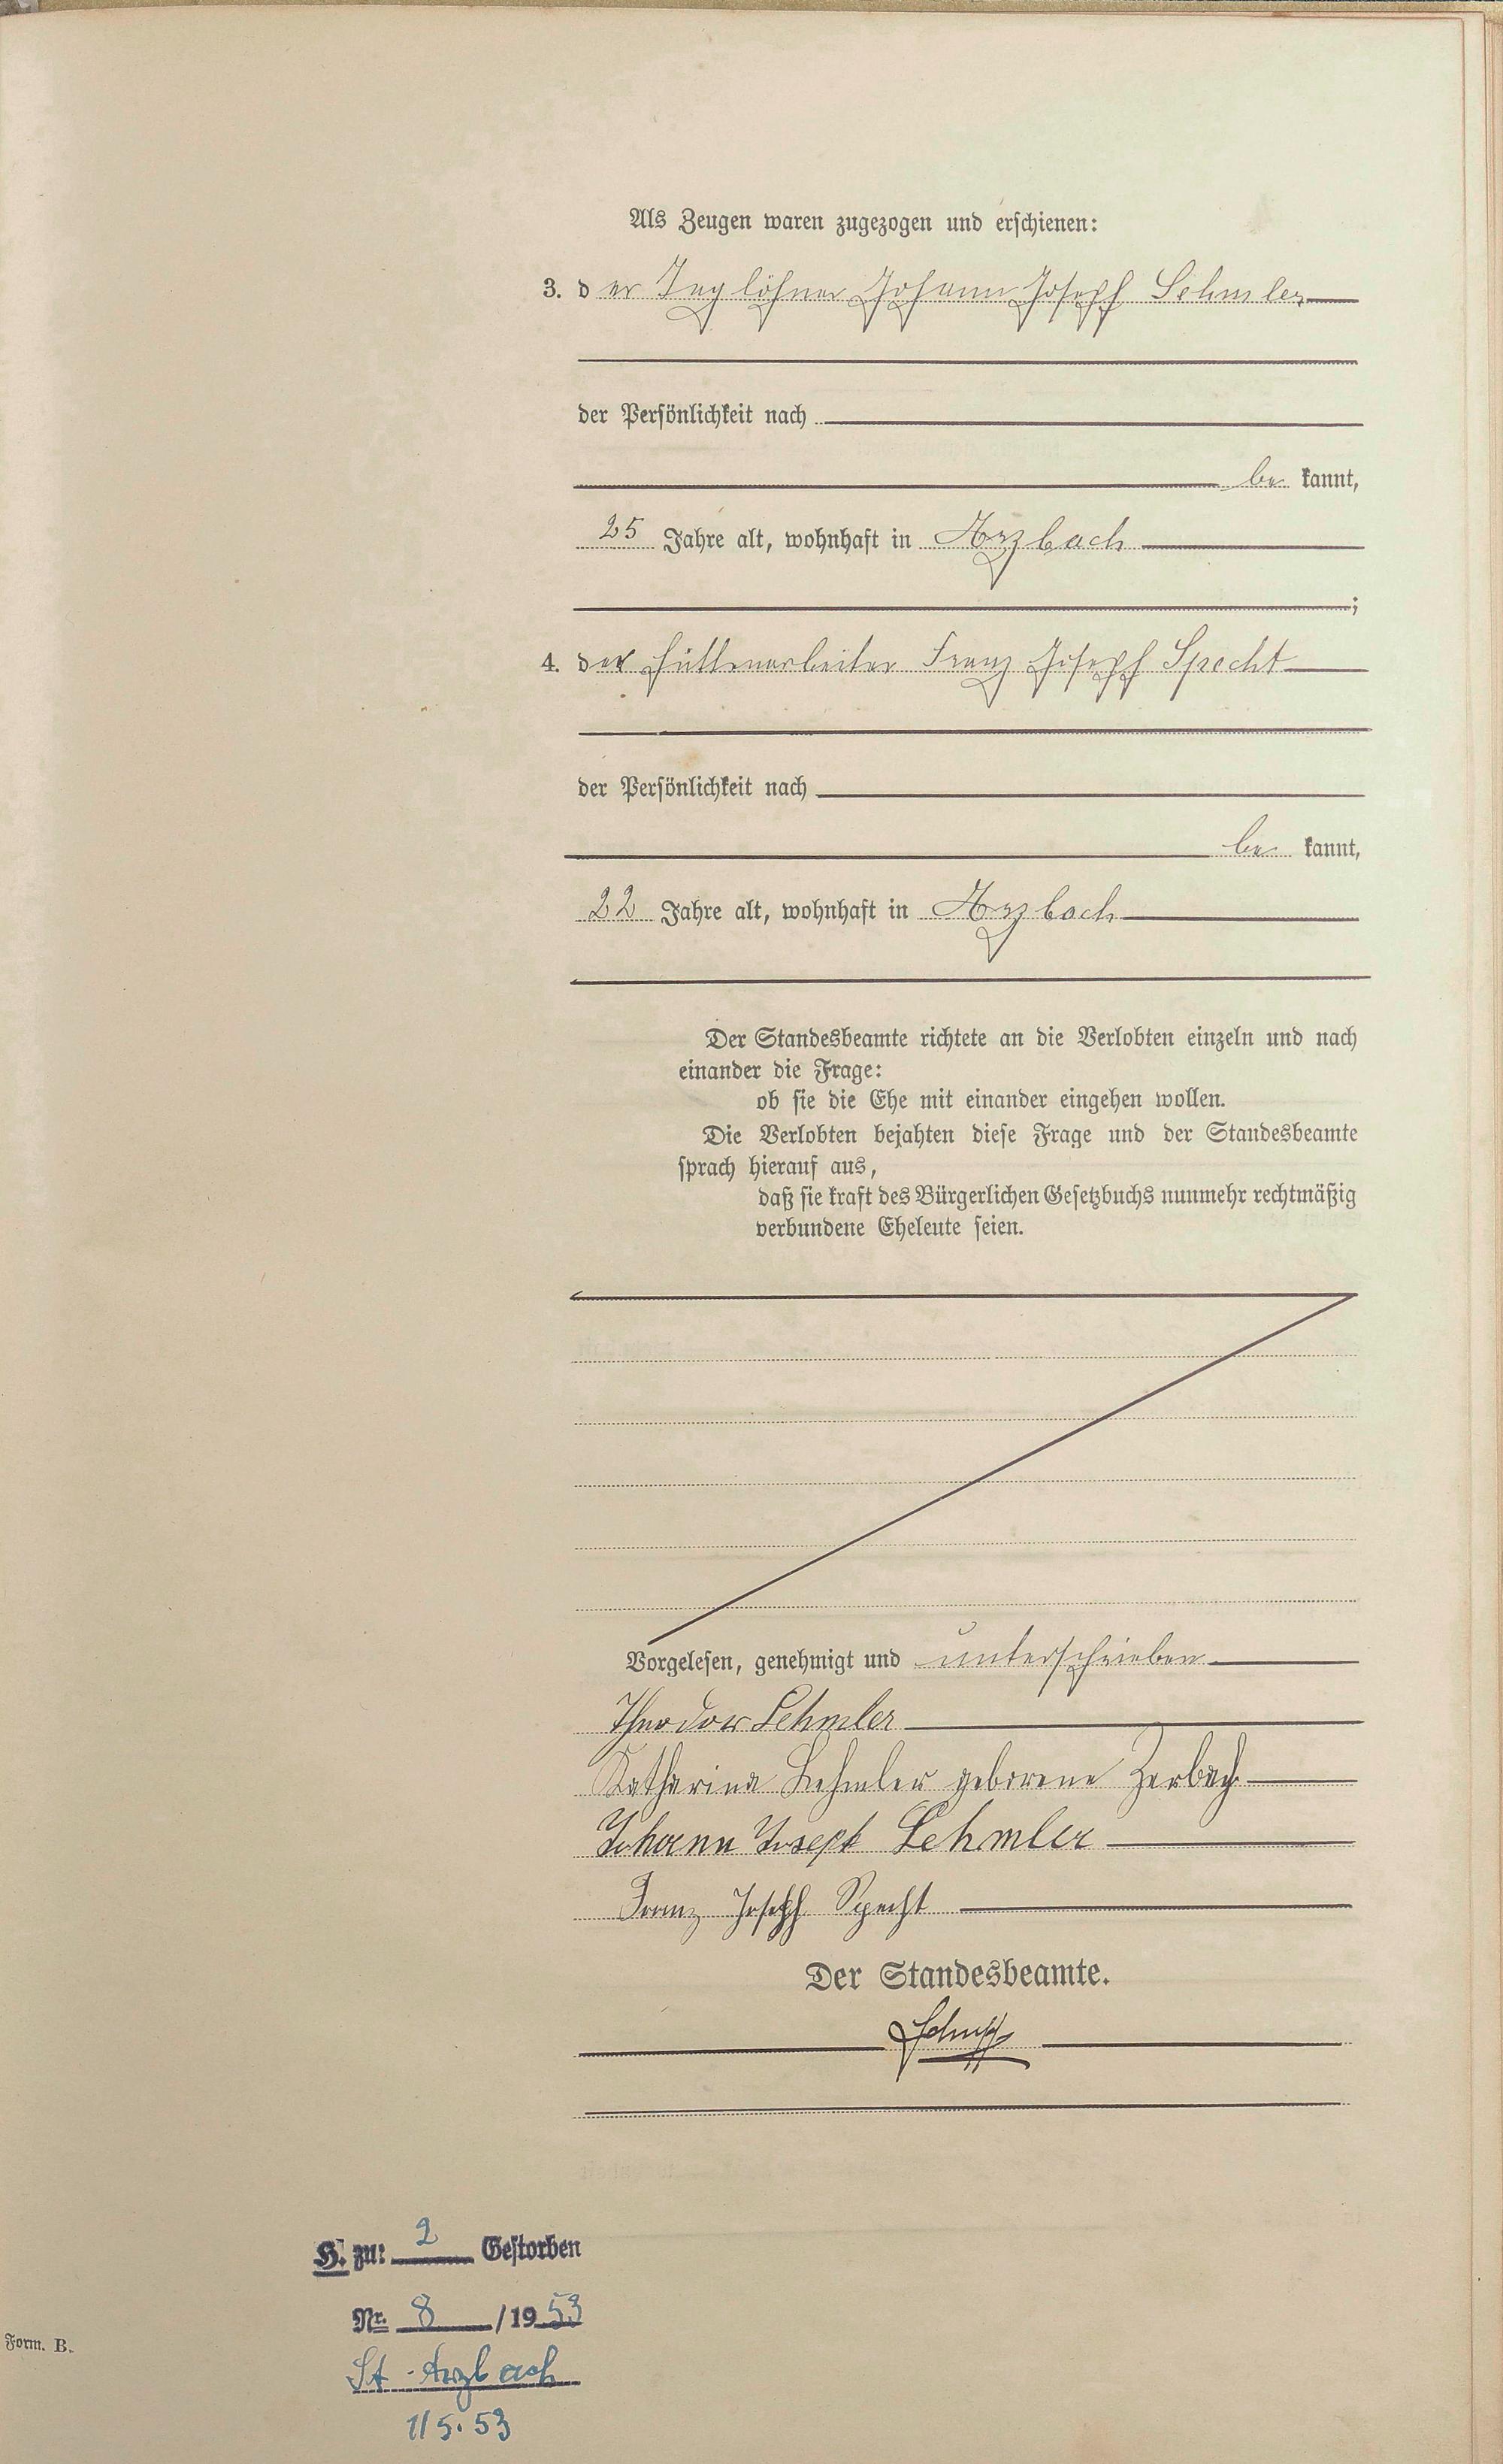 Als Zeugen waren zugezogen und erschienen:
3. der Taglöhner Johann Joseph Lehmler
der Persönlichkeit nach
be kannt,
25 Jahre alt, wohnhaft in Arzbach
;
4. der Hüttenarbeiter Franz Joseph Specht
der Persönlichkeit nach
be kannt,
22 Jahre alt, wohnhaft in Arzbach
Der Standesbeamte richtete an die Verlobten einzeln und nach
einander die Frage:
ob sie die Ehe mit einander eingehen wollen.
Die Verlobten bejahten diese Frage und der Standesbeamte
sprach hierauf aus,
daß sie kraft des Bürgerlichen Gesetzbuchs nunmehr rechtmäßig
verbundene Eheleute seien.
Vorgelesen, genehmigt und unterschrieben
Theodor Lehmler
Katharina Lehmler geborene Zerbach
Johann Joseph Lehmler
Franz Joseph Specht
Der Standesbeamte.
H. zu: 2 Gestorben
Nr. 8 /1953
St. Arzbach
1/5.53
Form. B.